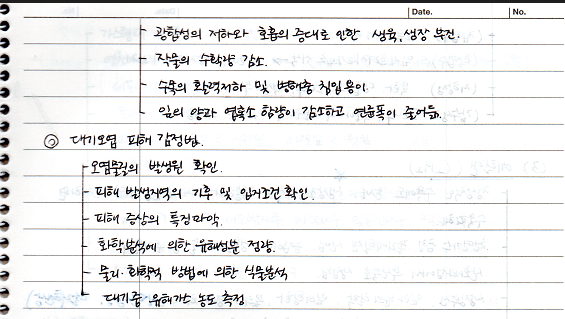 Date. No.
- 광합성의 저하와 호흡의 증대로 인한 생육, 생장 부진.
- 작물의 수확량 감소.
- 수목의 활력저하 및 병해충 침입 용이.
- 잎의 양과 엽록소 함량이 감소하고 연륜폭이 줄어듦.
② 대기오염 피해 감정법.
- 오염물질의 발생원 확인.
- 피해 발생지역의 기후 및 입지조건 확인.
- 피해 증상의 특징파악.
- 화학분석에 의한 유해성분 정량.
- 물리·화학적 방법에 의한 식물분석
- 대기중 유해가스 농도 측정